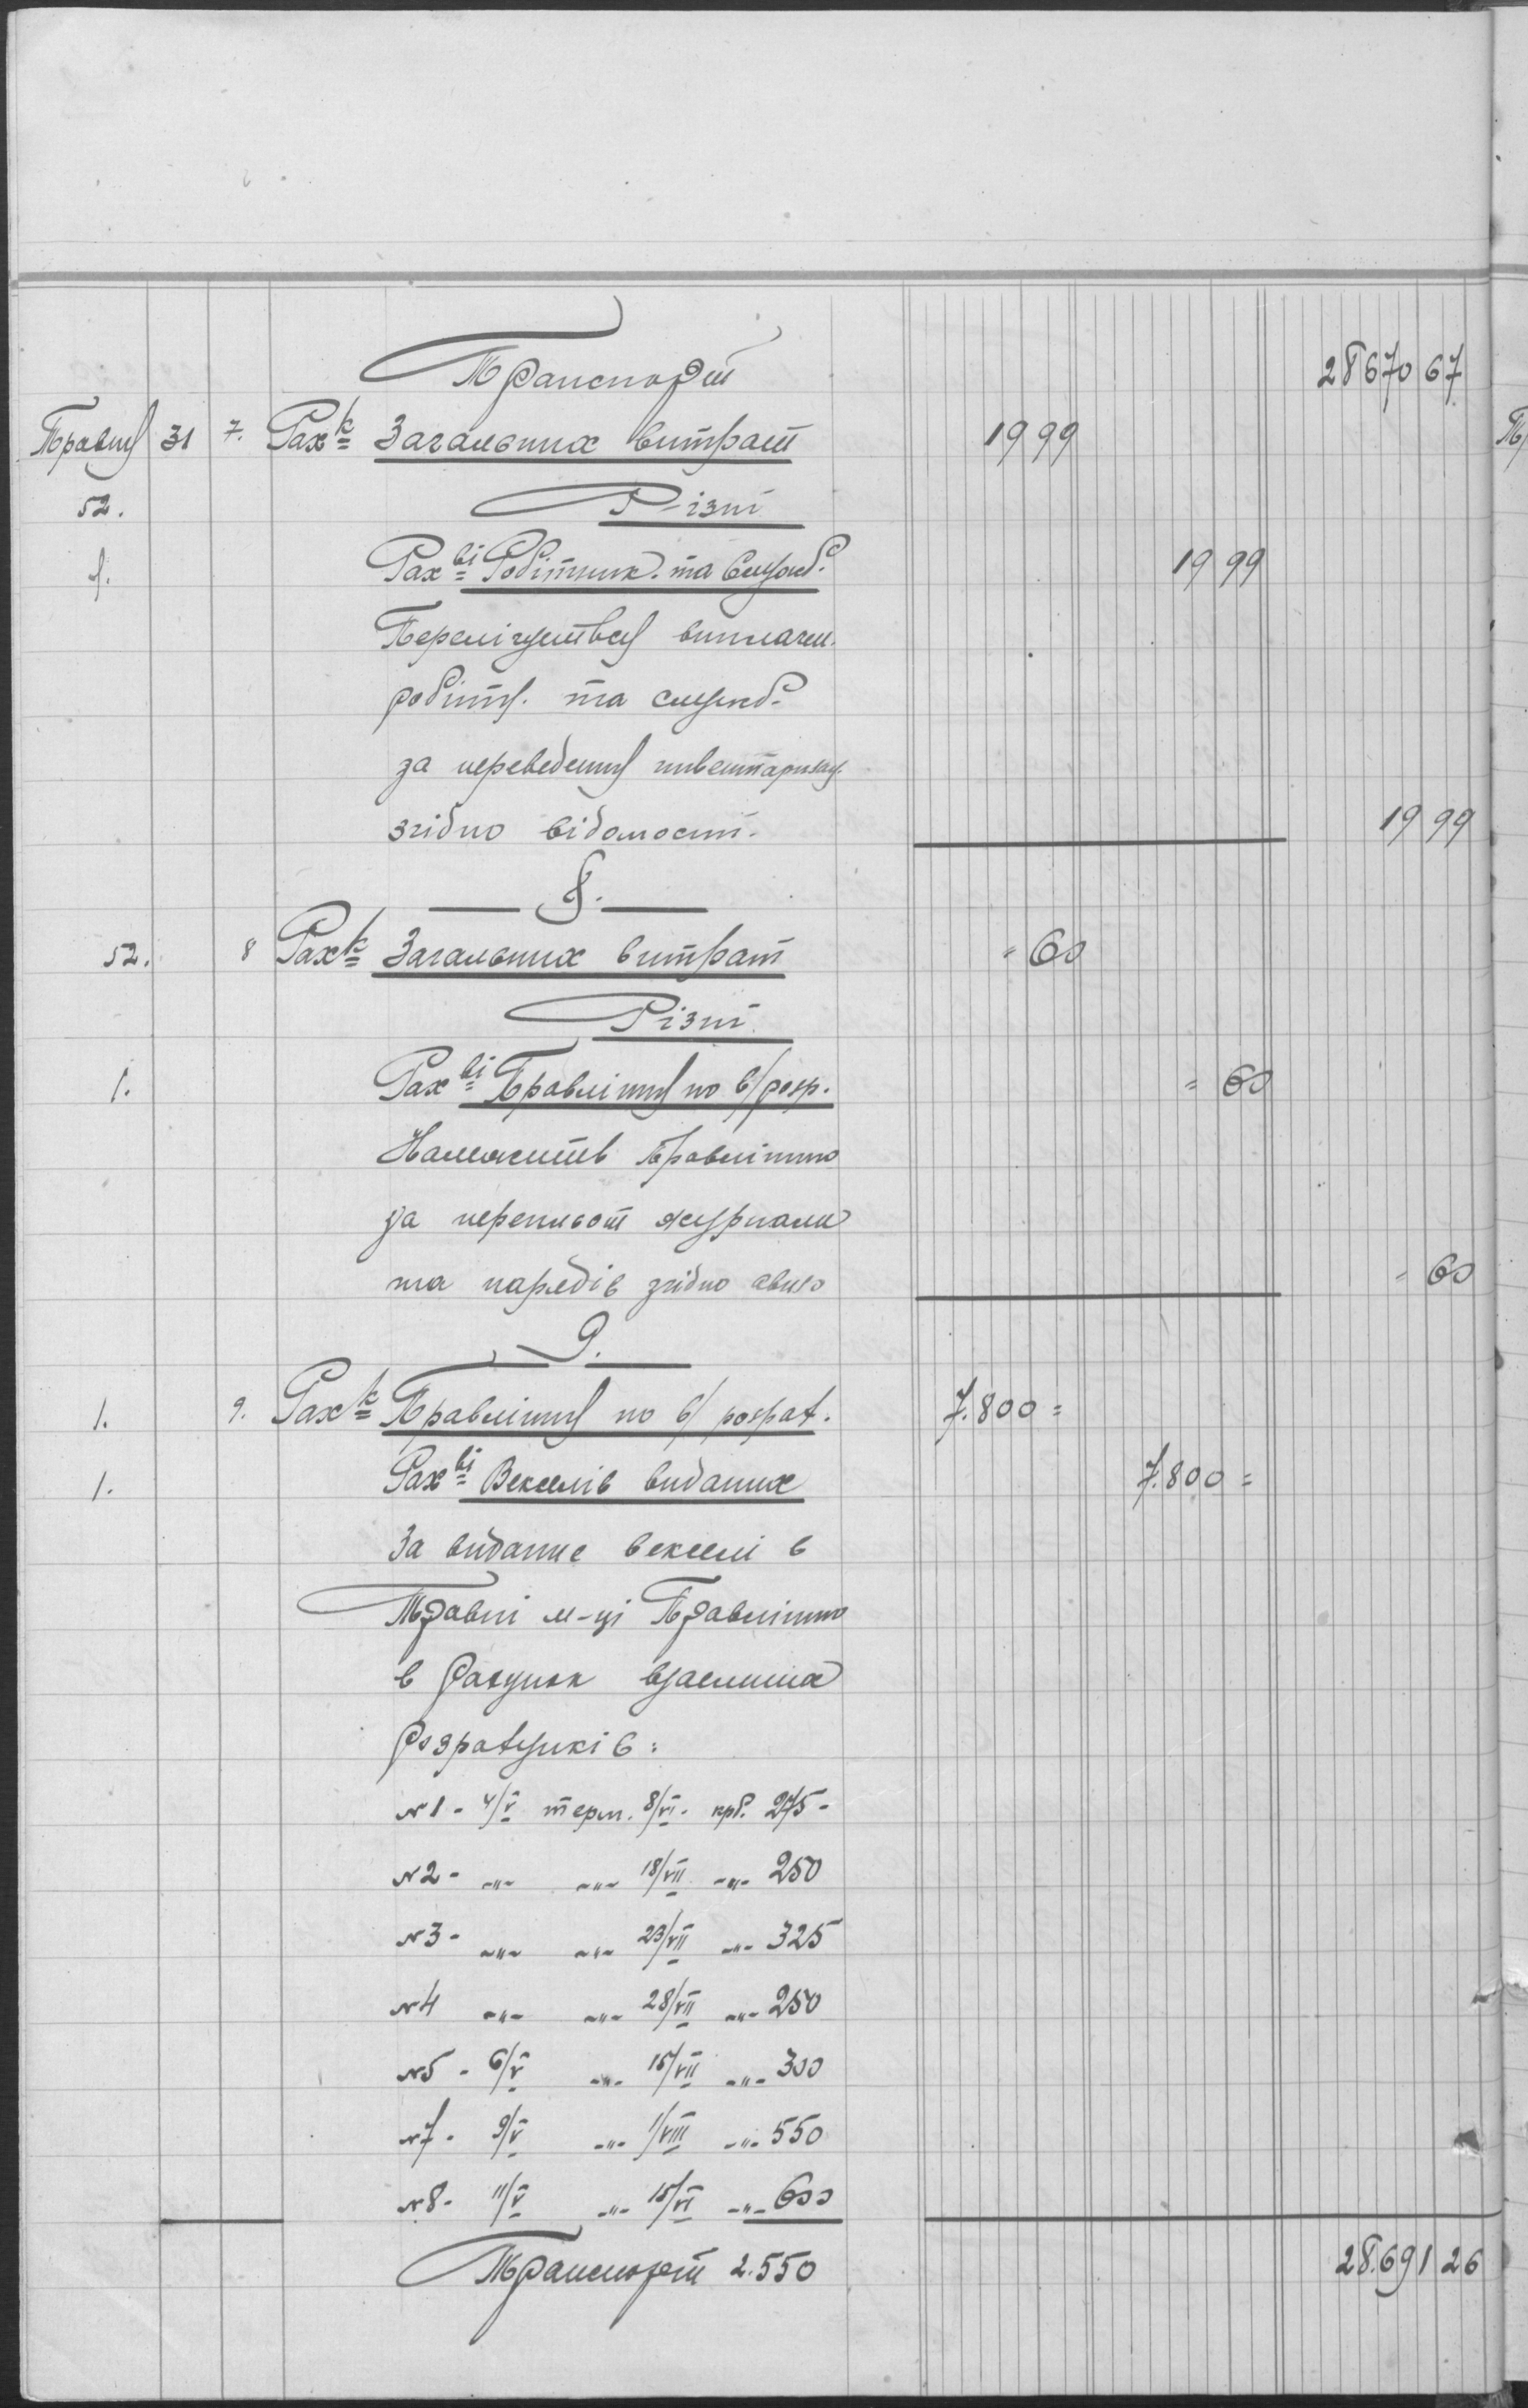 Транспорт 28670 67
Травня 31 7. Рах-к Загальних витрат 19 99
52. Р-ізні
1. Рах-ві Робітник. та Служб. 19 99
Перелічується виплачен.
робітн. та служб.
за переведення инвентаризац.
згідно відомости. 19 99
8.
52. 8 Рах-к Загальних витрат = 60
Різні
1. Рах-ві Правління по в/розр. = 60
Належить Правлінню
за переписот журнала
та нарядів згідно авизо = 60
9.
1. 9. Рах-к Правління по в/ розрах. 7.800 =
1. Рах-ві Векселів виданих 7.800 =
За видание векселі в
Травні м-ці Правлінню
в рахунок взаємних
розрахунків:
№1 - 4/V терм. 8/VI - крб. 275 -
№2 - -"- -"- 18/VII -"- 250
№3 - -"- -"- 23/VII -"- 325
№4 -"- -"- 28/VII -"- 250
№5 - 6/V -"- 15/VII -"- 300
№7 - 9/V -"- 1/VIII -"- 550
№8 - 11/V -"- 15/VI -"- 600
Транспорт 2.550 28.691 26